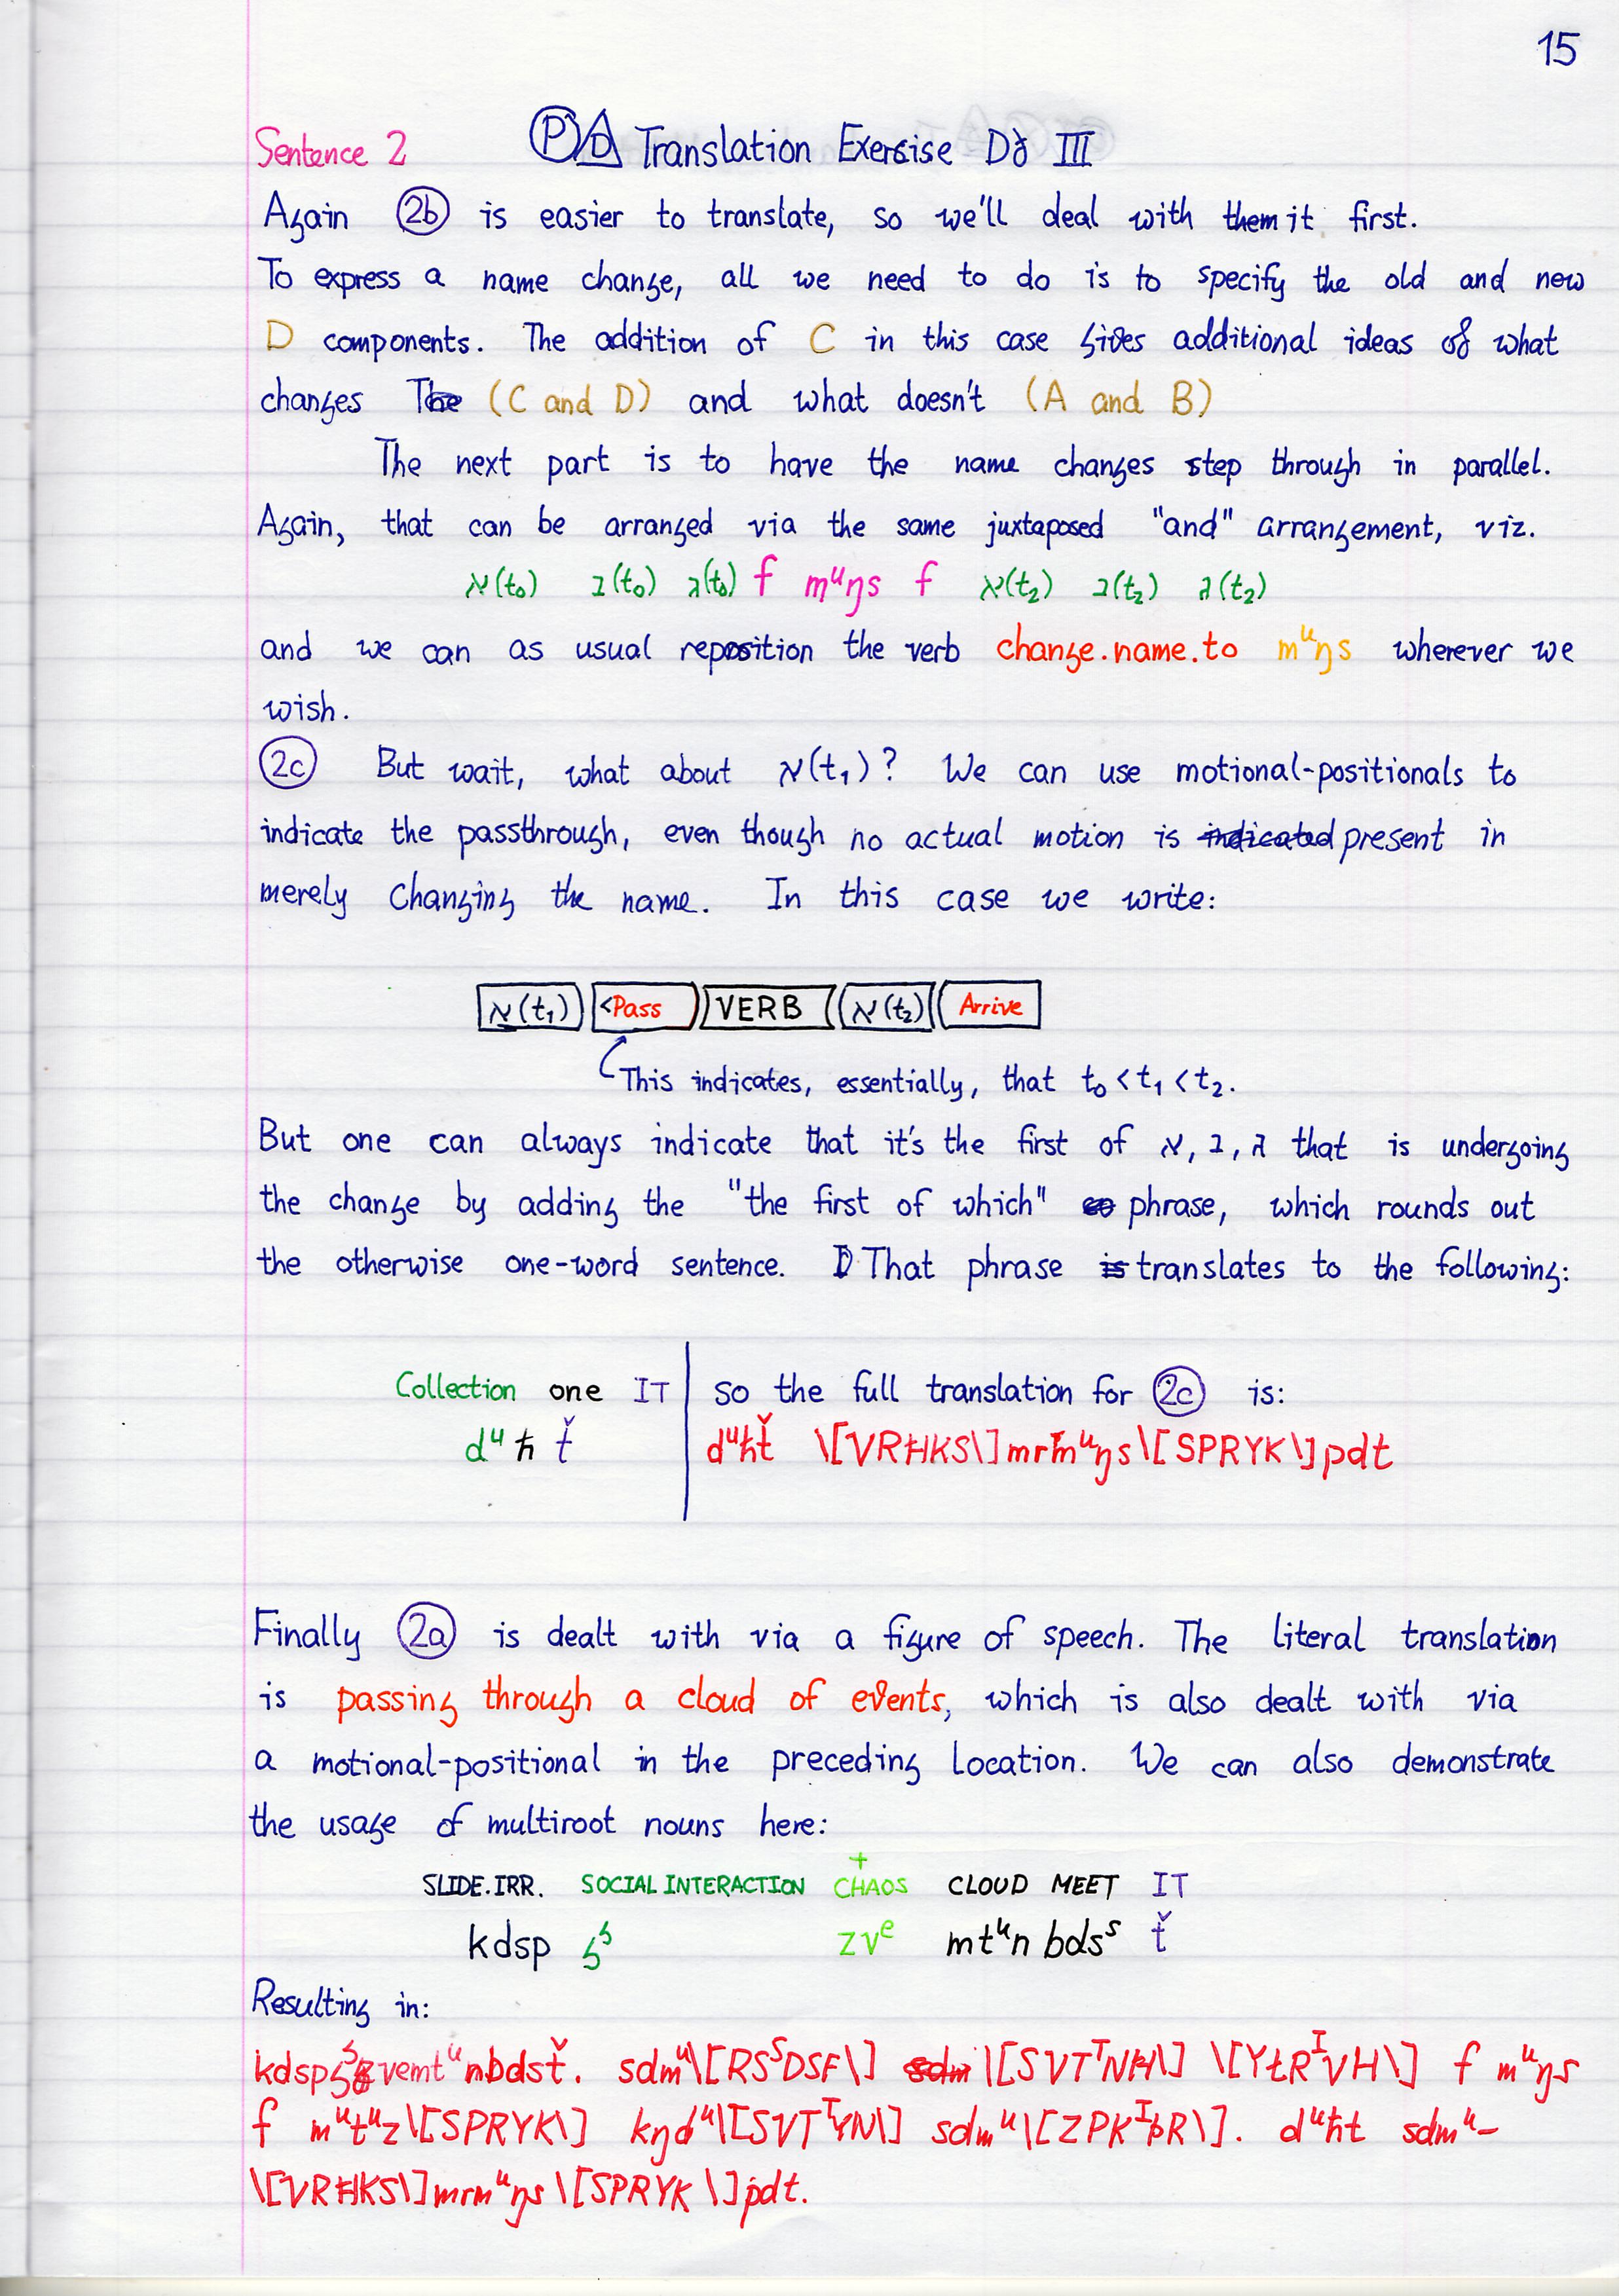 15
Sentence 2 P/D Translation Exercise DJ III
Again 2b is easier to translate, so we'll deal with them it first.
To express a name change, all we need to do is to specify the old and new
D components. The addition of C in this case gives additional ideas of what
changes The (C and D) and what doesn't (A and B)
The next part is to have the name changes step through in parallel.
Again, that can be arranged via the same juxtaposed "and" arrangement, viz.
א(t₀) ב(t₀) ג(t₀) f mᵘŋs f א(t₂) ב(t₂) ג(t₂)
and we can as usual reposition the verb change.name.to mᵘŋs wherever we
wish.
2c But wait, what about א(t₁)? We can use motional-positionals to
indicate the passthrough, even though no actual motion is indicated present in
merely changing the name. In this case we write:
א(t₁) <Pass VERB א(t₂) Arrive
This indicates, essentially, that t₀<t₁<t₂.
But one can always indicate that it's the first of א, ב, ג that is undergoing
the change by adding the "the first of which" phrase, which rounds out
the otherwise one-word sentence. That phrase is translates to the following:
Collection one IT so the full translation for 2c is:
dᵘ ħ ť dᵘħť \[VRĦKS\]mrmᵘŋs\[SPRYK\]pdt
Finally 2a is dealt with via a figure of speech. The literal translation
is passing through a cloud of events, which is also dealt with via
a motional-positional in the preceding location. We can also demonstrate
the usage of multiroot nouns here:
SLIDE.IRR. SOCIAL INTERACTION + CHAOS CLOUD MEET IT
kdsp gᵍ zvᵉ mtᵘn bdsˢ ť
Resulting in:
sdmᵘ\[RSˢDSF\] sdm \[SVTᵀNH\] \[YŁRᴵVH\] f mᵘŋs
f mᵘtᵘz\[SPRYK\] kŋdᵘ\[SVTᵀYN\] sdmᵘ\[ZPKᴵÞR\]. dᵘħt sdmᵘ-
\[VRĦKS\]mrmᵘŋs\[SPRYK\]pdt.